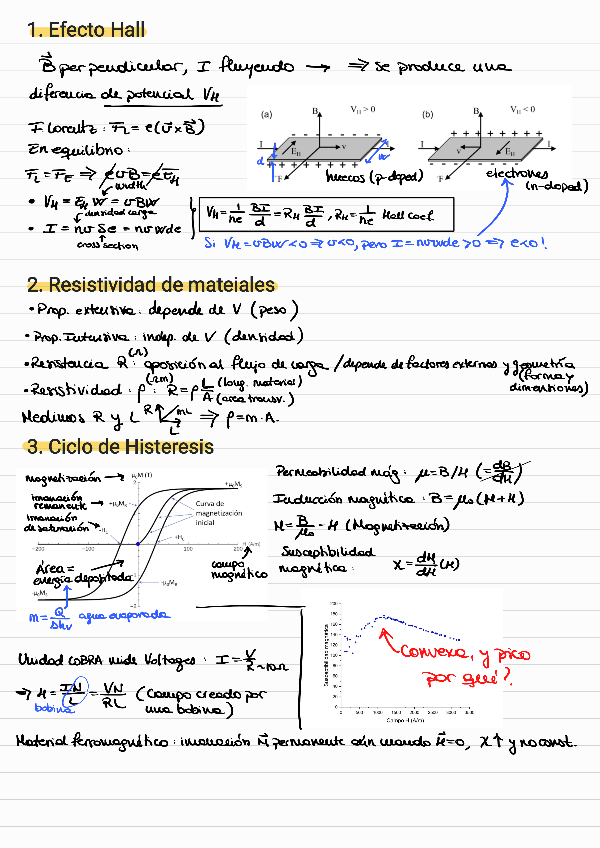 1. Efecto Hall
B⃗ perpendicular, I fluyendo → ⇒ se produce una
diferencia de potencial V_H
F Lorentz: F⃗_L = e(v⃗×B⃗)
En equilibrio:
F_L = F_E ⇒ evB = eE_H
width
• V_H = E_H W = vBW
densidad carga
• I = nvSe = nvwde
cross section
(a) B V_H > 0
I E_H v I
d w F
huecos (p-doped)
(b) B V_H < 0
I E_H v I
F
electrones
(n-doped)
V_H = 1/ne BI/d = R_H BI/d , R_H = 1/ne Hall coef
Si V_H = vBW < 0 ⇒ v<0, pero I = nvwde > 0 ⇒ e<0!
2. Resistividad de mateiales
• Prop. extensiva: depende de V (peso)
• Prop. Intensiva: indep. de V (densidad)
• Resistencia R (Ω): oposición al flujo de carga / depende de factores externos y geometría
(forma y
dimensiones)
• Resistividad: ρ (Ωm): R = ρ L/A (long. material)
(area transv.)
Medimos R y L R mL L ⇒ ρ = m·A.
3. Ciclo de Histeresis
magnetización → μ₀M (T)
imanación
remanente → +μ₀M_R
imanación
de saturación
+μ₀M_S
Curva de
magnetización
inicial
-H_c
+H_c
H (A/m)
−200 −100 0 100 200
2
−2
-μ₀M_R
-μ₀M_S
Area =
energía depositada
campo
magnético
m = Q/Δhv agua evaporada
Permeabilidad mág: μ = B/H (= dB/dH)
Inducción magnética: B = μ₀(M+H)
M = B/μ₀ - H (Magnetización)
Susceptibilidad
magnética: χ = dM/dH (H)
Susceptibilidad magnética
200
180
160
140
120
100
80
60
40
20
0
0 500 1000 1500 2000 2500 3000 3500
Campo H (A/m)
Convexa, y pico
por qué?
Unidad CoBRA mide Voltages: I = V/R ~10Ω
⇒ H = IN/L = VN/RL (Campo creado por
una bobina)
bobina
Material ferromagnético: imanación M⃗ permanente aún cuando H⃗=0, χ↑ y no const.